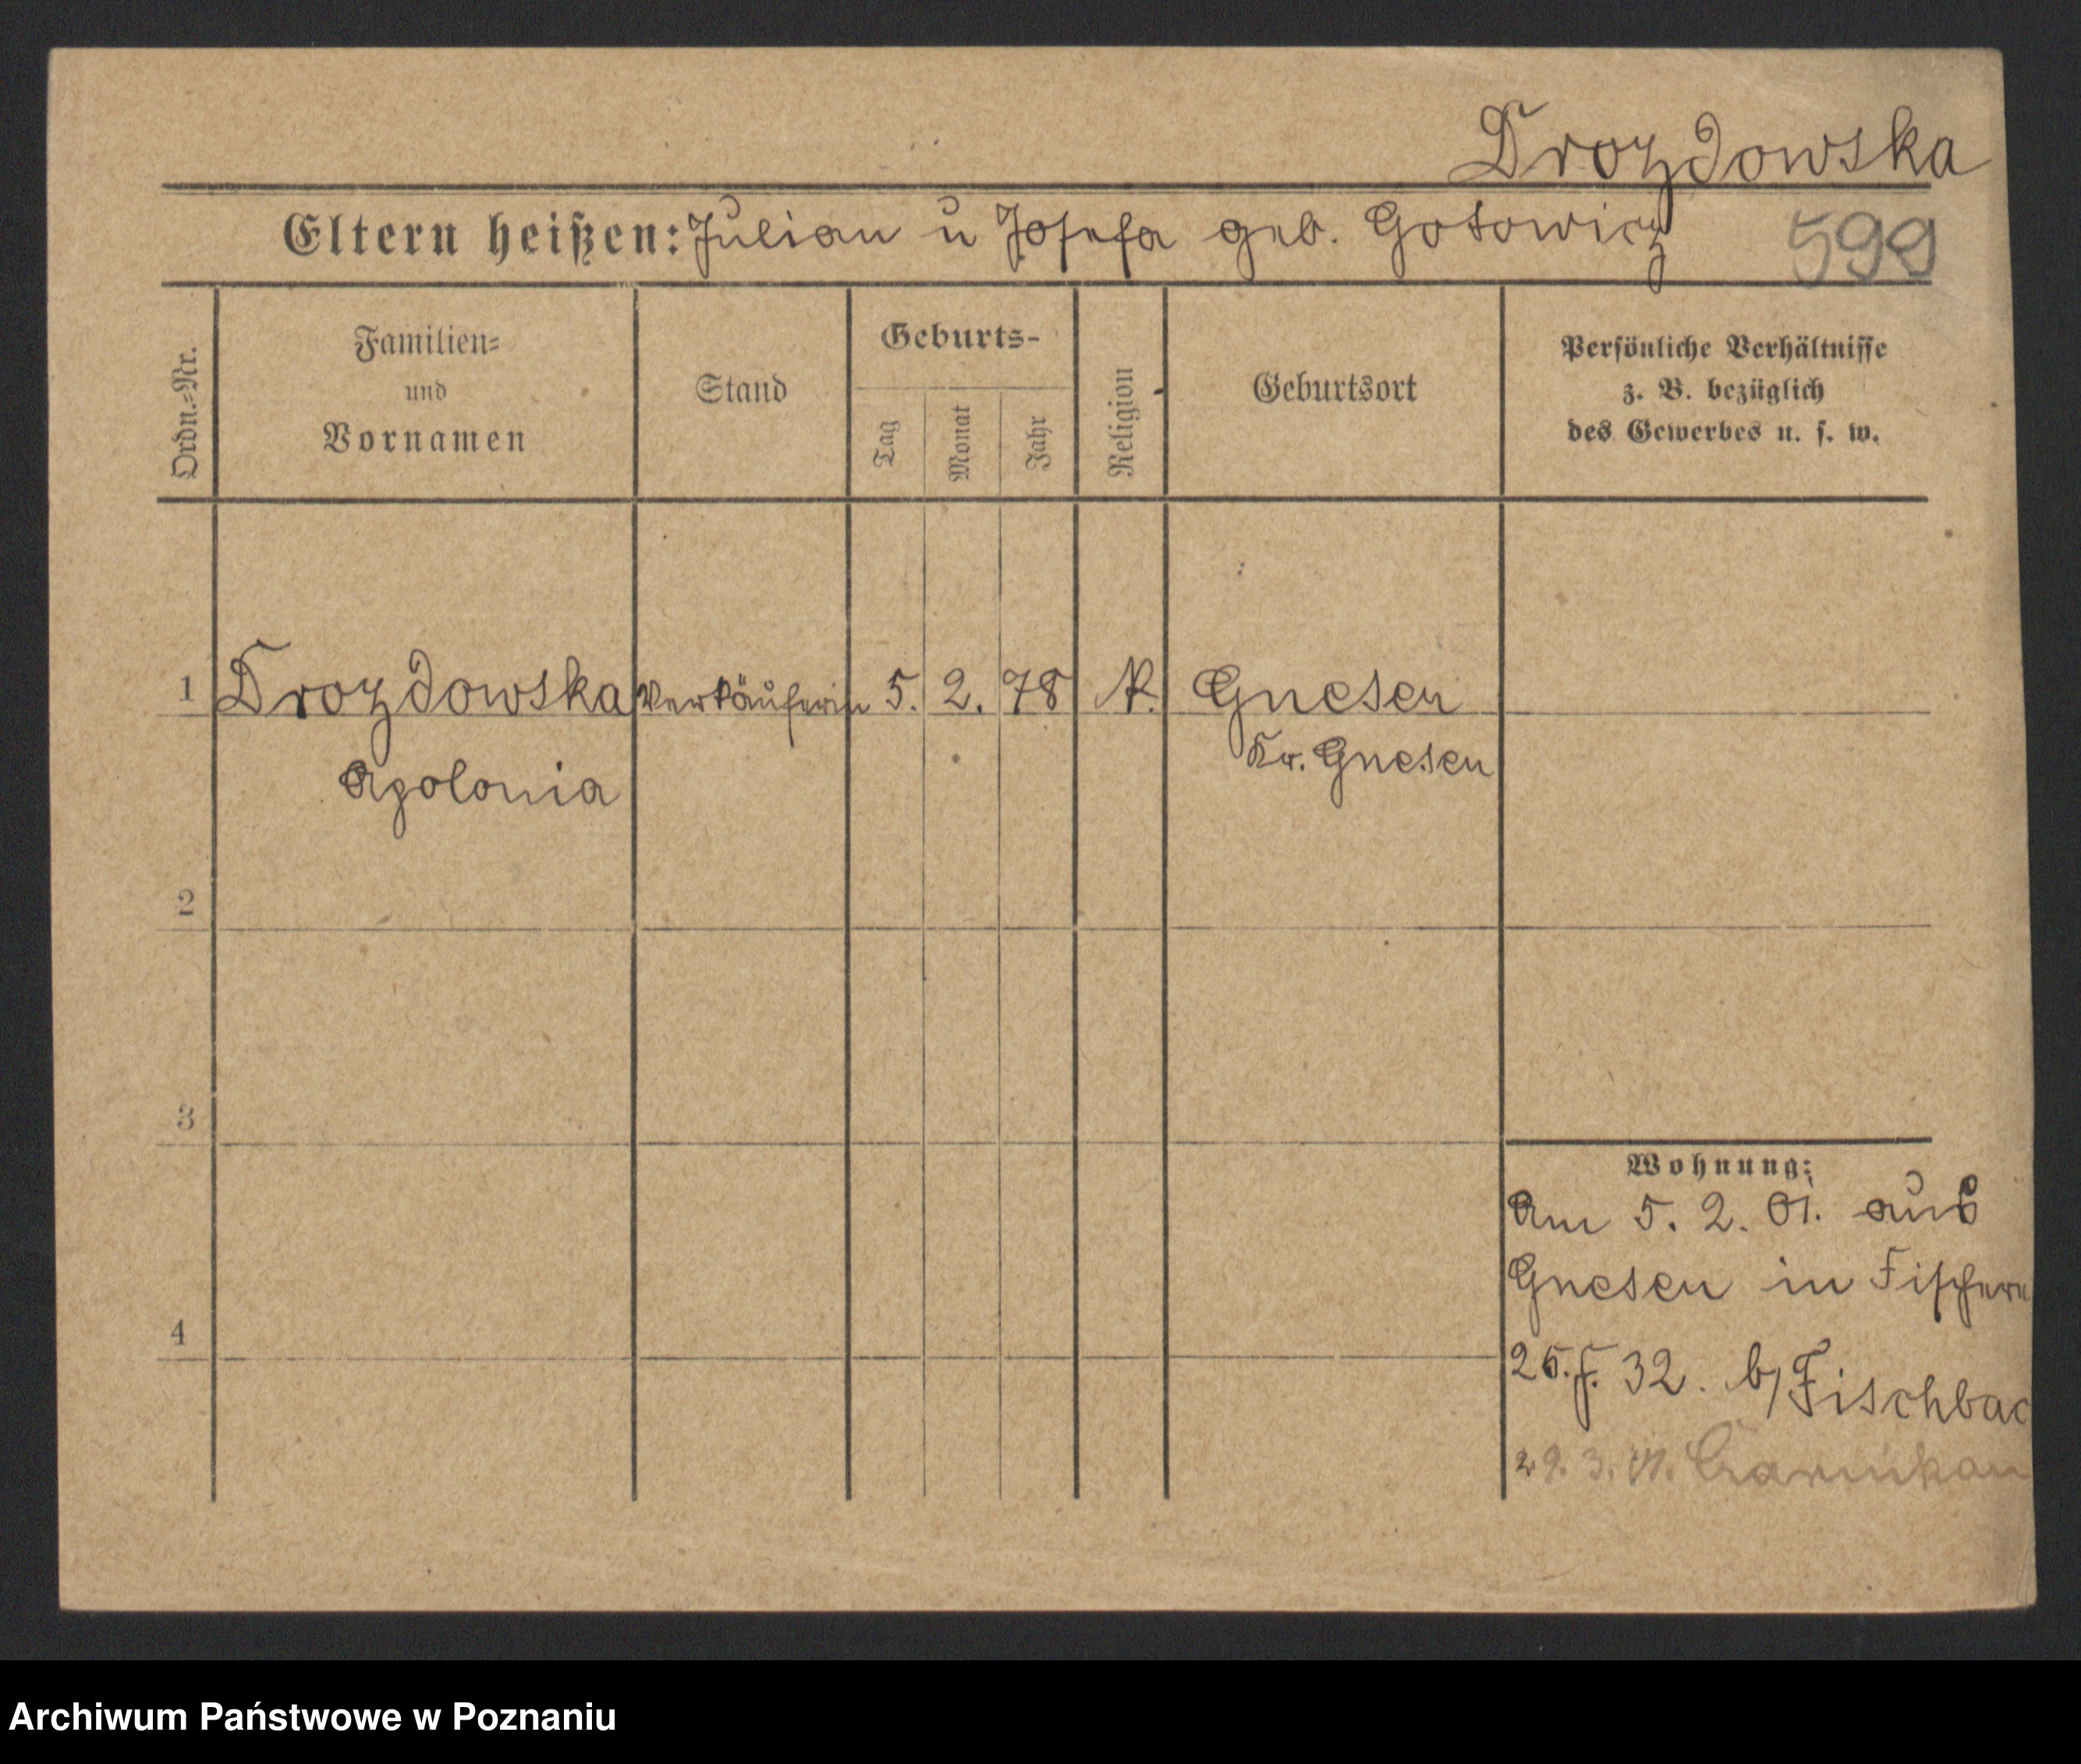 Drozdowska
Eltern heißen: Julian u Josefa geb. Gotowicz 599
Ordn.-Nr.
Familien-
und
Vornamen
Stand
Geburts-
Tag
Monat
Jahr
Religion
Geburtsort
Persönliche Verhältnisse
z. B. bezüglich
des Gewerbes u. s. w.
1 Drozdowska Verkäuferin 5. 2. 78 K. Gnesen
Apolonia Kr. Gnesen
2
3
Wohnung:
Am 5. 2. 01. aus
Gnesen in Fischerei
4
32. b/Fischbac
29. 3. 01. Czarnikau
Archiwum Państwowe w Poznaniu